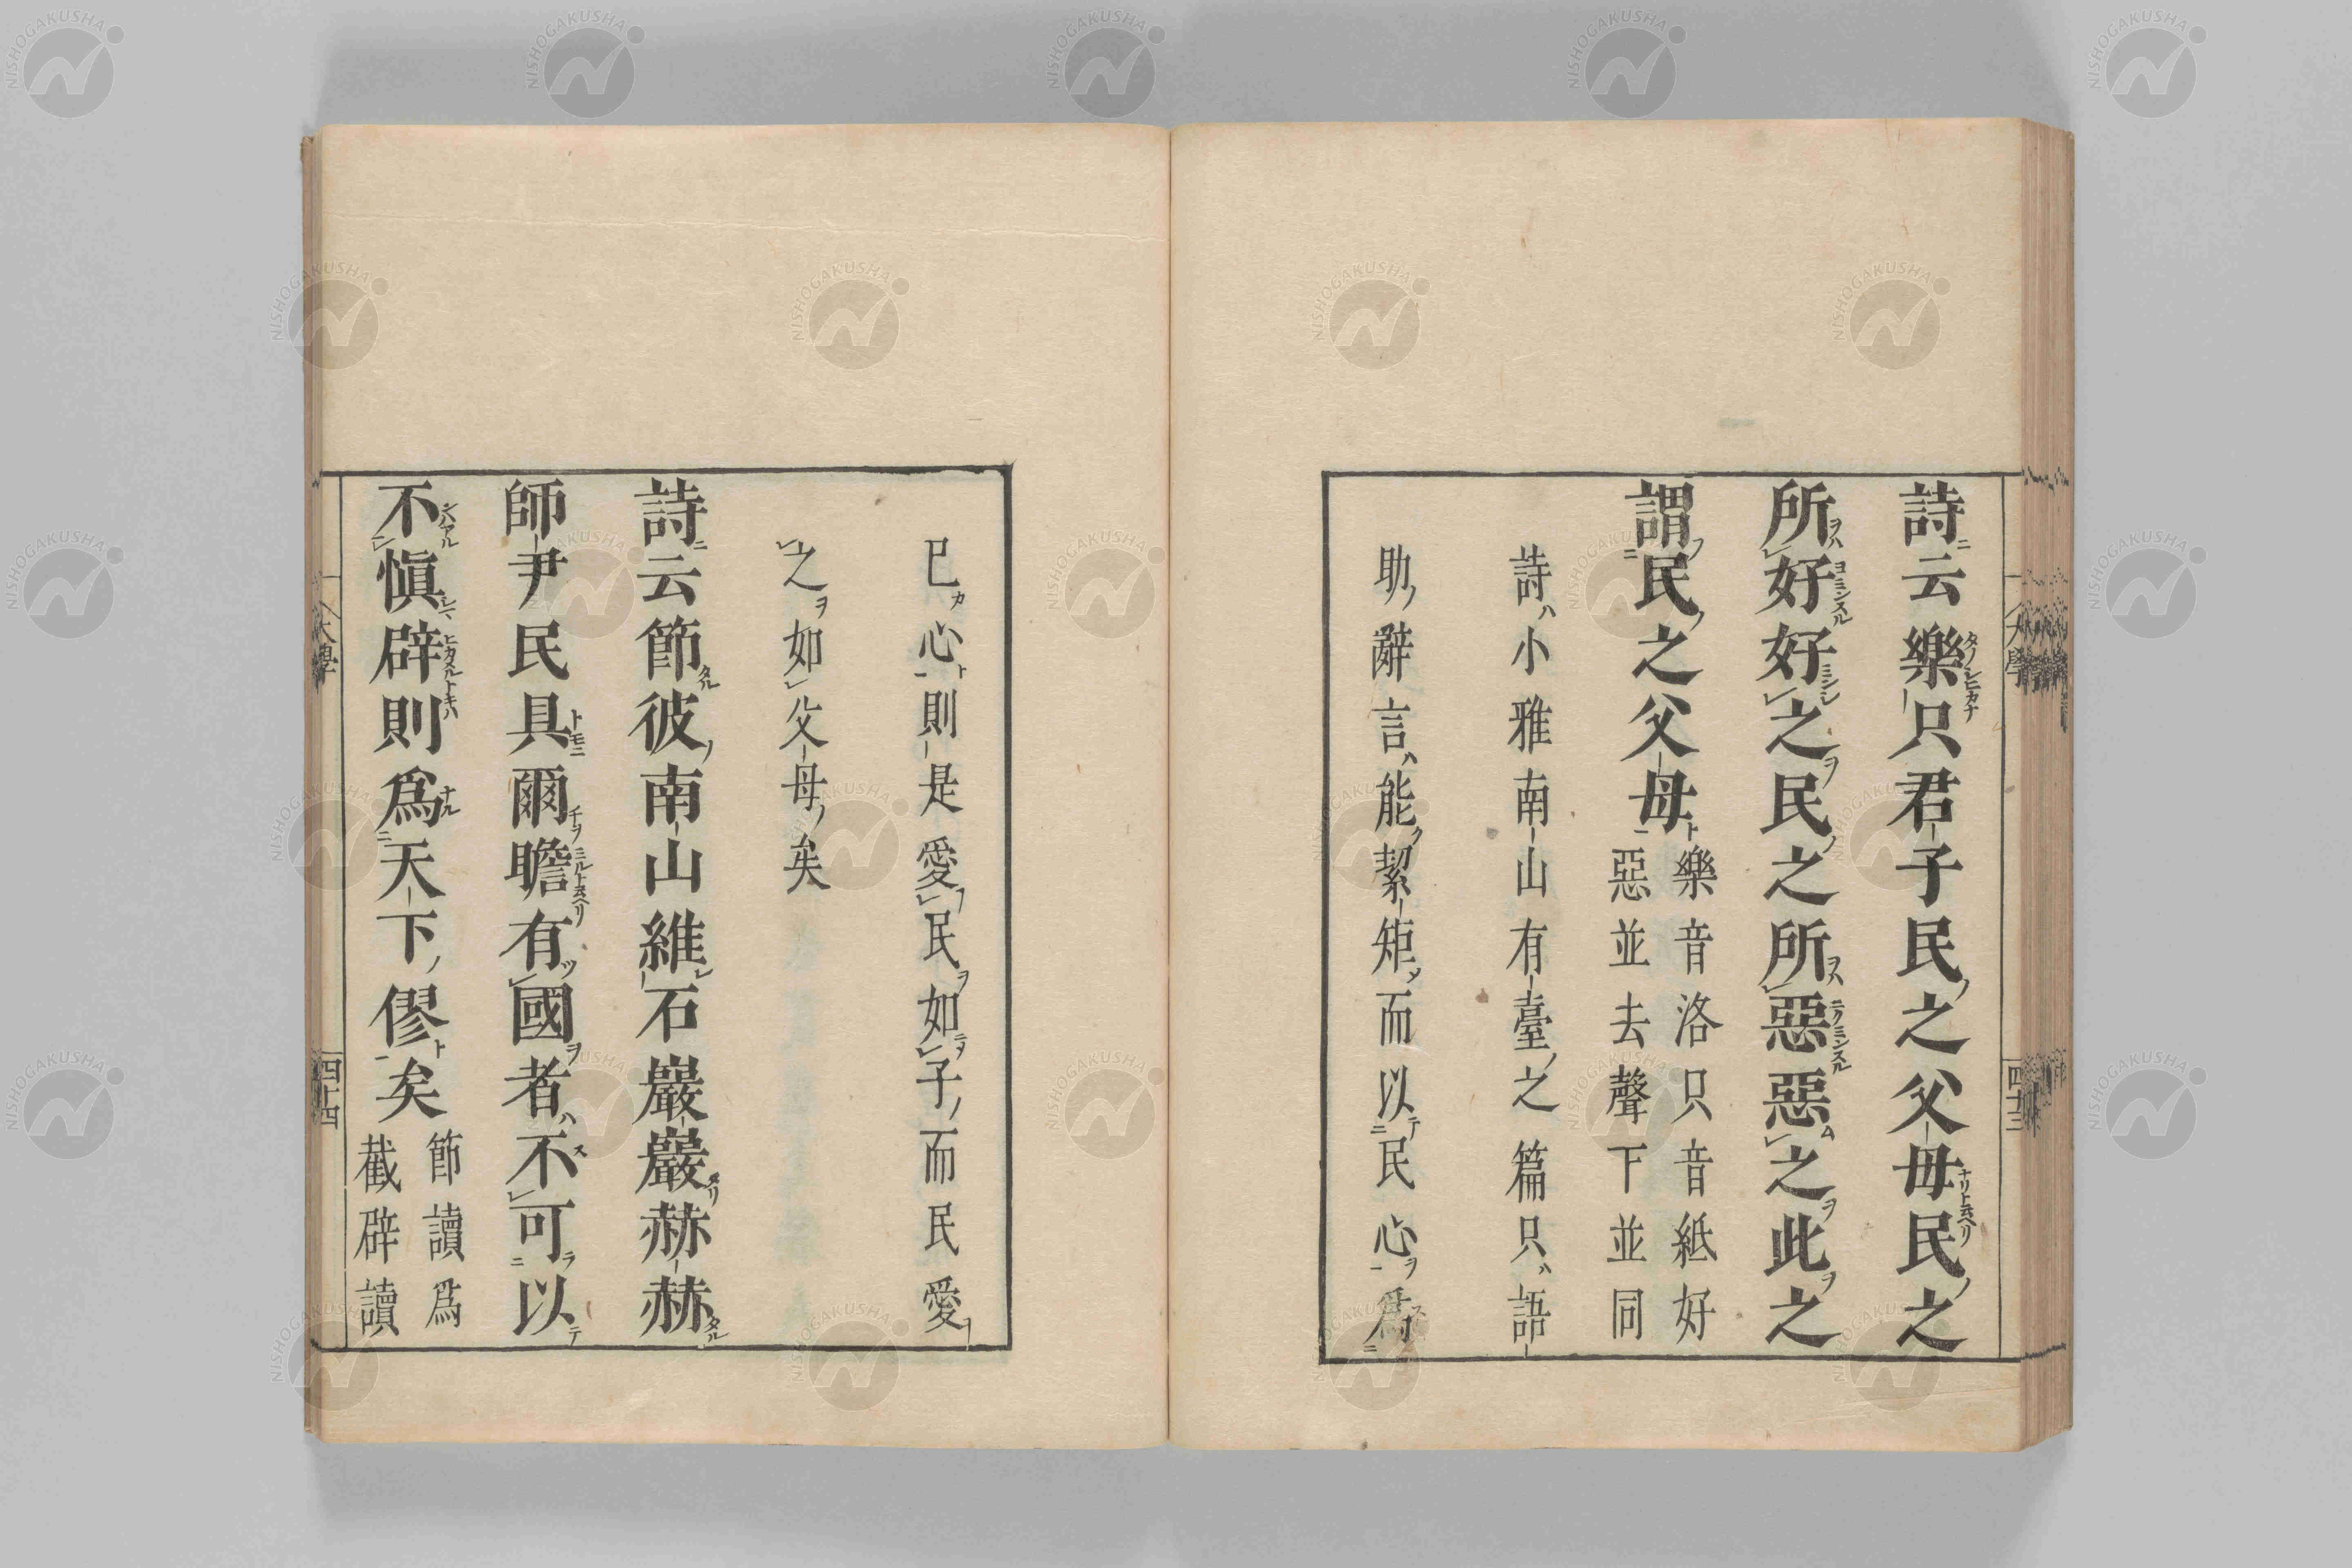 詩云樂只君子民之父母民之
所好好之民之所惡惡之此之
謂民之父母
樂音洛只音紙好
惡並去聲下並同
詩小雅南山有臺之篇只語
助辭言能絜矩而以民心爲
已心則是愛民如子而民愛
之如父母矣
詩云節彼南山維石巖巖赫赫
師尹民具爾瞻有國者不可以
不愼辟則爲天下僇矣
節讀爲
截辟讀
大學
四十三
大學
四十四
NISHOGAKUSHA